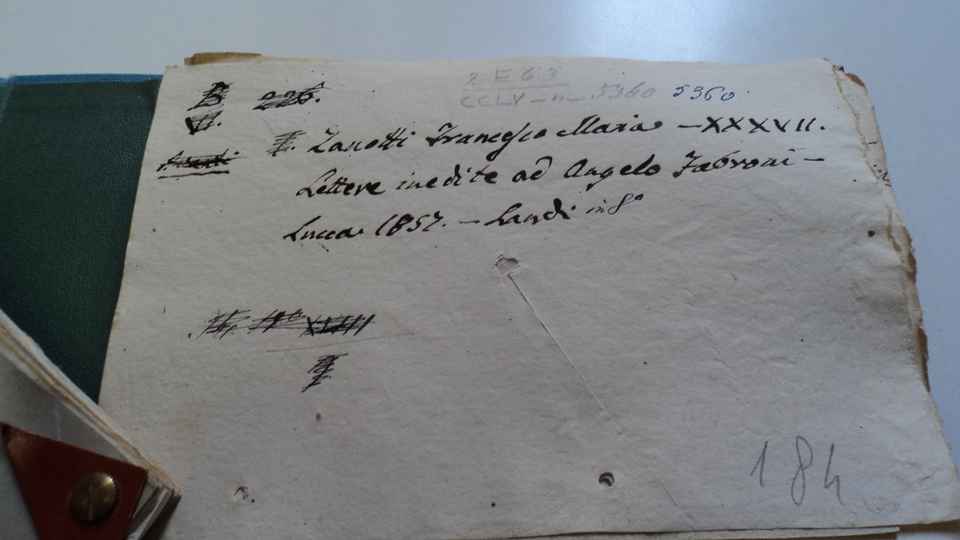 2 E 63
B 226.
CCLV - n - 5960 5960.
VI.
Zanotti Francesco Maria - XXXVII.
Lettere inedite ad Angelo Fabroni -
Lucca 1857. - Landi in 8º
XVIII
184